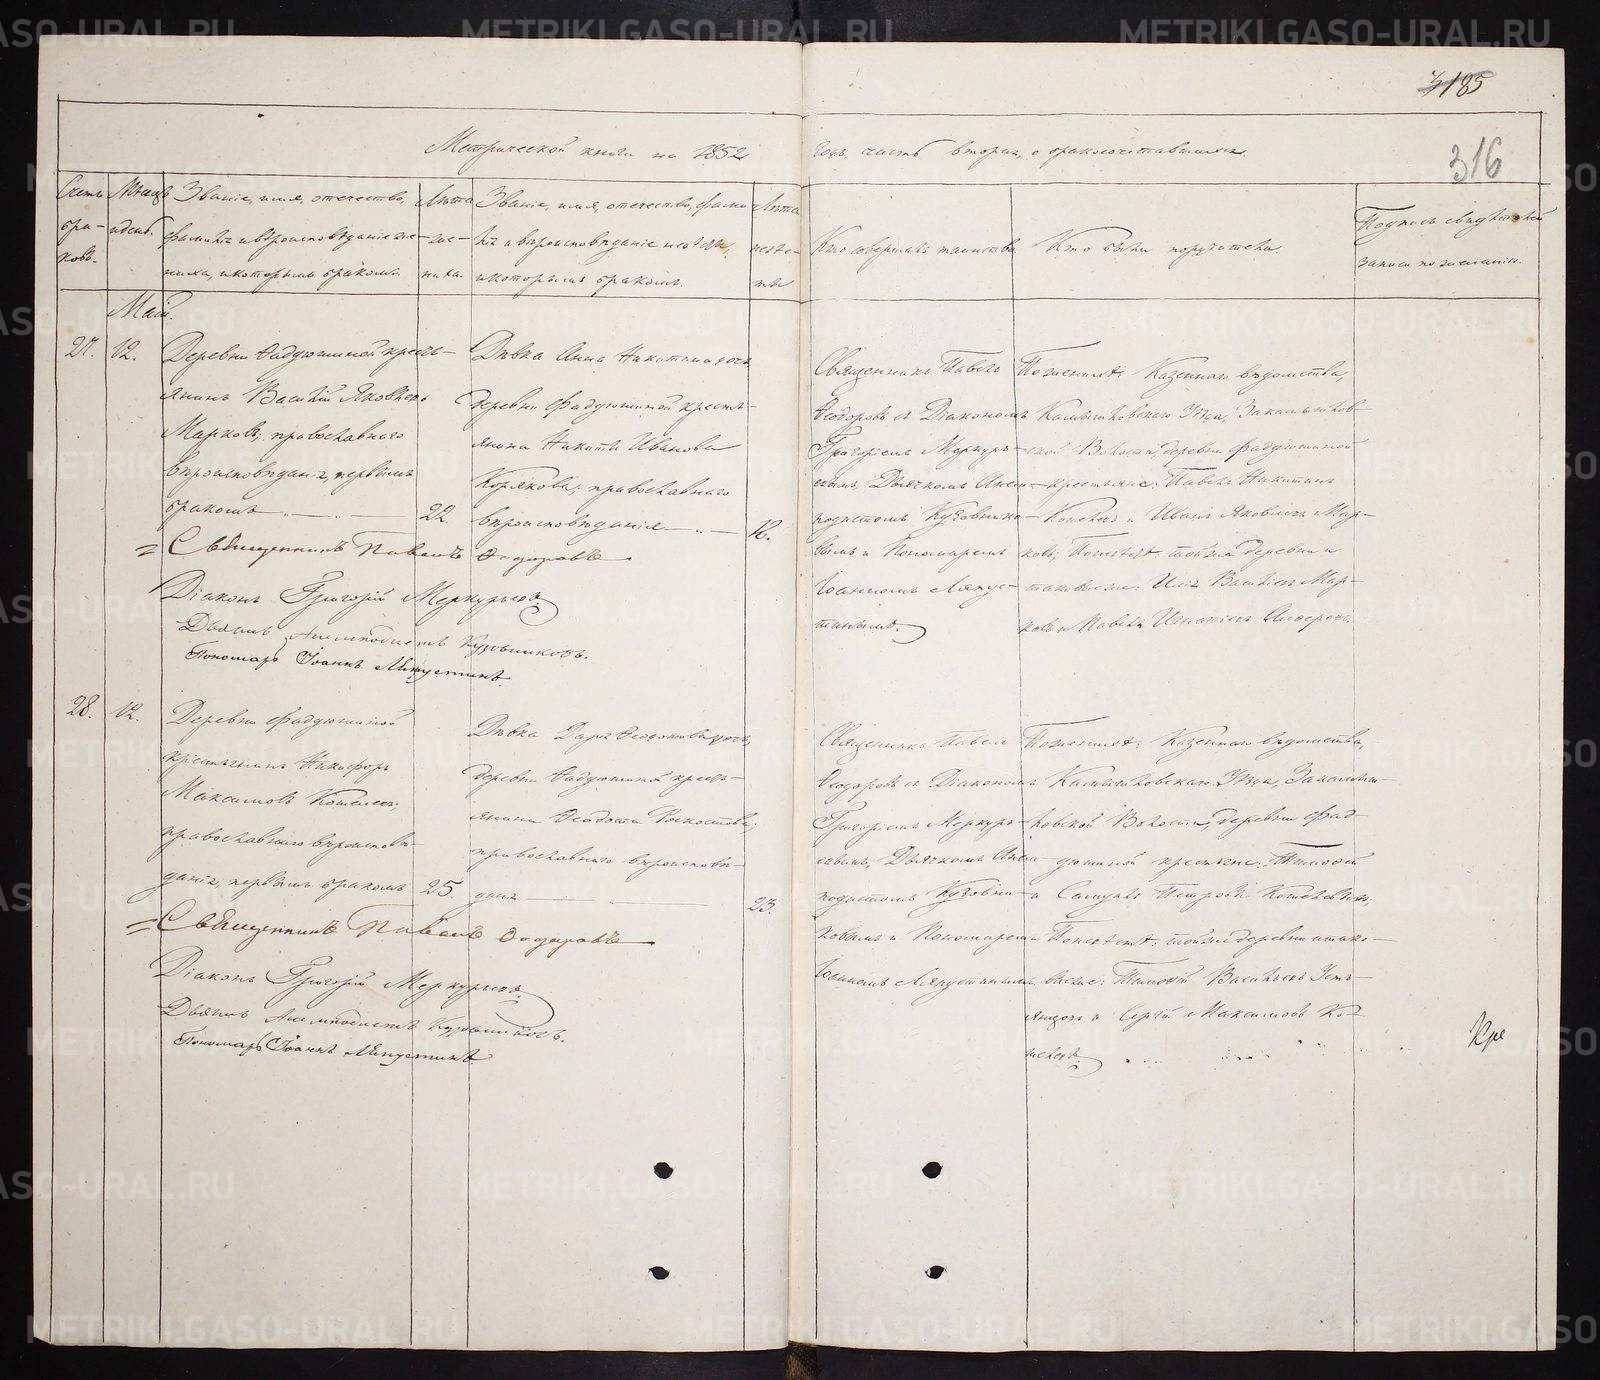 3185
316
Метрической книги на 1852 годъ, часть вторая, о бракосочетавшихся.
Счетъ бра-ковъ.
Мѣсяцъ и день.
Званіе, имя, отечество,
фамилія и вѣроисповѣданіе же-
ниха, и которымъ бракомъ.
Лѣта
же-
ниха.
Званіе, имя, отечество, фами
лія и вѣроисповѣданіе невѣсты,
и которымъ бракомъ.
Лѣта
невѣс-
ты
Кто совершалъ таинство.
Кто были поручители.
Подпись свидѣтелей
записи по желанію.
Май.
27.
12.
Деревни Фадюшиной кресть-
янинъ Василій Яковлевъ
Марковъ; православнаго
вѣроисповѣданія, первымъ
бракомъ
22.
Дѣвка Анна Никитина дочь,
деревни Фадюшиной кресть-
янина Никиты Иванова
Корякова; православнаго
вѣроисповѣданія
Священникъ Павелъ
Ѳеодоровъ съ Діакономъ
Григоріемъ Меркурь-
евымъ, Дьячкомъ Анем-
подистомъ Кузовнико-
вымъ и Пономаремъ
Іоанномъ Ляпус-
тинымъ.
По женихѣ: Казеннаго вѣдомства,
Камышловскаго Уѣзда, Закамышлов-
ской Волости, деревни Фадюшиной
крестьяне: Павелъ Никитинъ
Кошелевъ и Иванъ Яковлевъ Мар-
ковъ; По невѣстѣ: той же деревни и
таковые же: Илья Васильевъ Мар-
ковъ и Павелъ Игнатьевъ
Священникъ Павелъ Ѳеодоровъ
Діаконъ Григорій Меркурьевъ
Дьячекъ Анемподистъ Кузовниковъ.
Пономарь Іоаннъ Ляпустинъ
28.
12.
Деревни Фадюшиной
крестьянинъ Никифоръ
Максимовъ Кошелевъ;
православнаго вѣроисповѣ-
данія, первымъ бракомъ
25.
Дѣвка Дарья Ѳеодотова дочь,
деревни Фадюшиной кресть-
янина Ѳеодота
православнаго вѣроисповѣ-
данія
23.
Священникъ Павелъ
Ѳеодоровъ съ Діакономъ
Григоріемъ Меркурь-
евымъ, Дьячкомъ Анем-
подистомъ Кузовни-
ковымъ и Пономаремъ
Іоанномъ Ляпустинымъ
По женихѣ: Казеннаго вѣдомства,
Камышловскаго Уѣзда, Закамыш-
ловской Волости, деревни Фад-
юшиной крестьяне: Тимоѳей
и Самуилъ Петровы Кошелевы;
По невѣстѣ: той же деревни и тако-
вые же: Тимоѳей Васильевъ Уст-
янцевъ и Сергій Максимовъ Ко-
шелевъ.
Священникъ Павелъ Ѳеодоровъ
Діаконъ Григорій Меркурьевъ
Дьячекъ Анемподистъ Кузовниковъ.
Пономарь Іоаннъ Ляпустинъ
METRIKI.GASO-URAL.RU